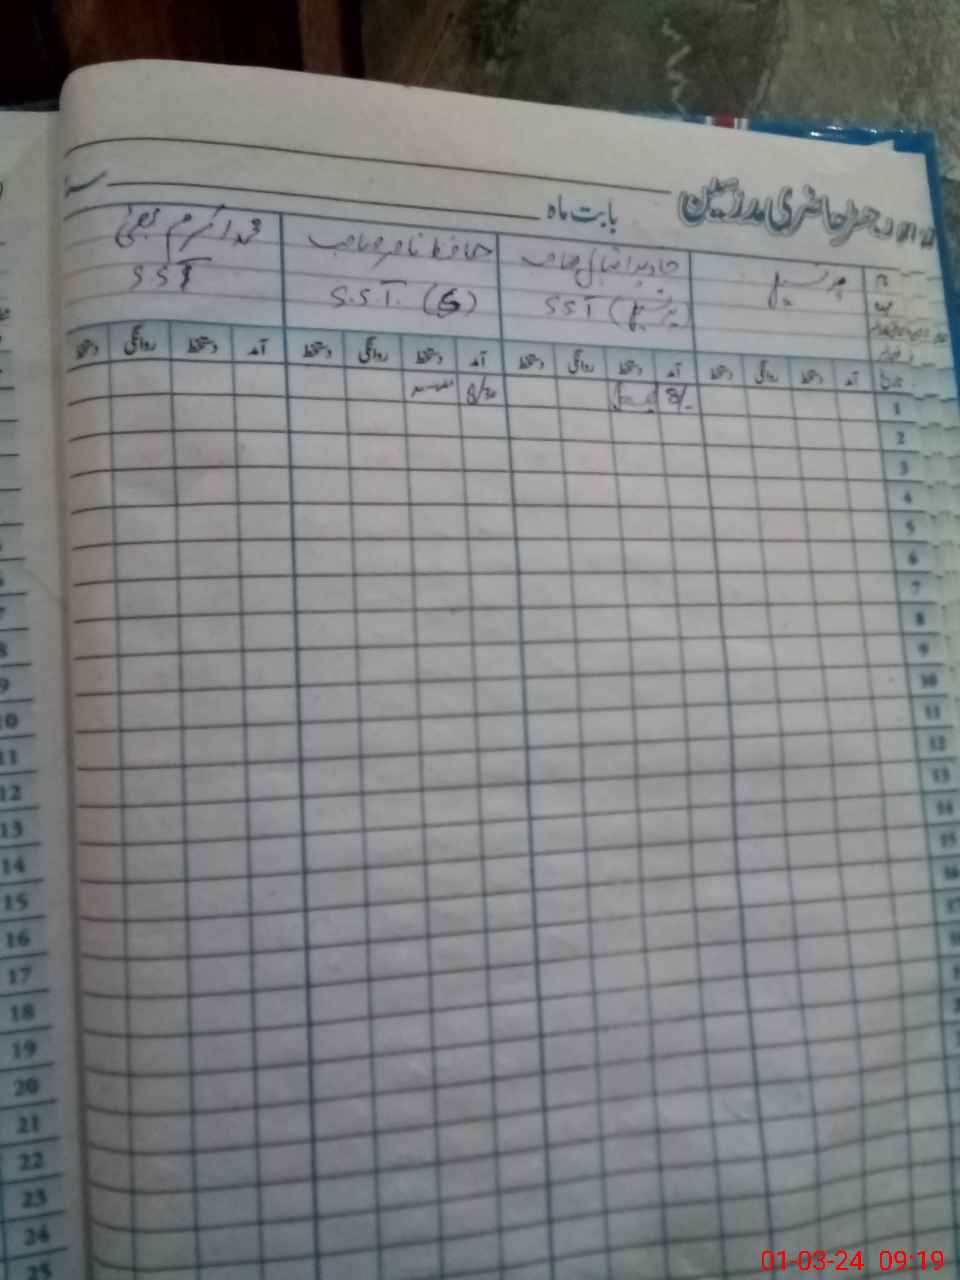 رجسٹر حاضری مدرسین
بابت ماہ
پرنسپل
جاوید اقبال صاحب
حافظ ناصر صاحب
محمد اکرم
SST (پرنسپل)
S.S.T. (S)
SST
تاریخ آمد دستخط روانگی دستخط آمد دستخط روانگی دستخط آمد دستخط روانگی دستخط آمد دستخط روانگی دستخط
1 8/- 8/30
2
3
4
5
6
7
8
9
10
11
12
13
14
15
16
17
7
8
9
10
11
12
13
14
15
16
17
18
19
20
21
22
23
24
25
01-03-24 09:19